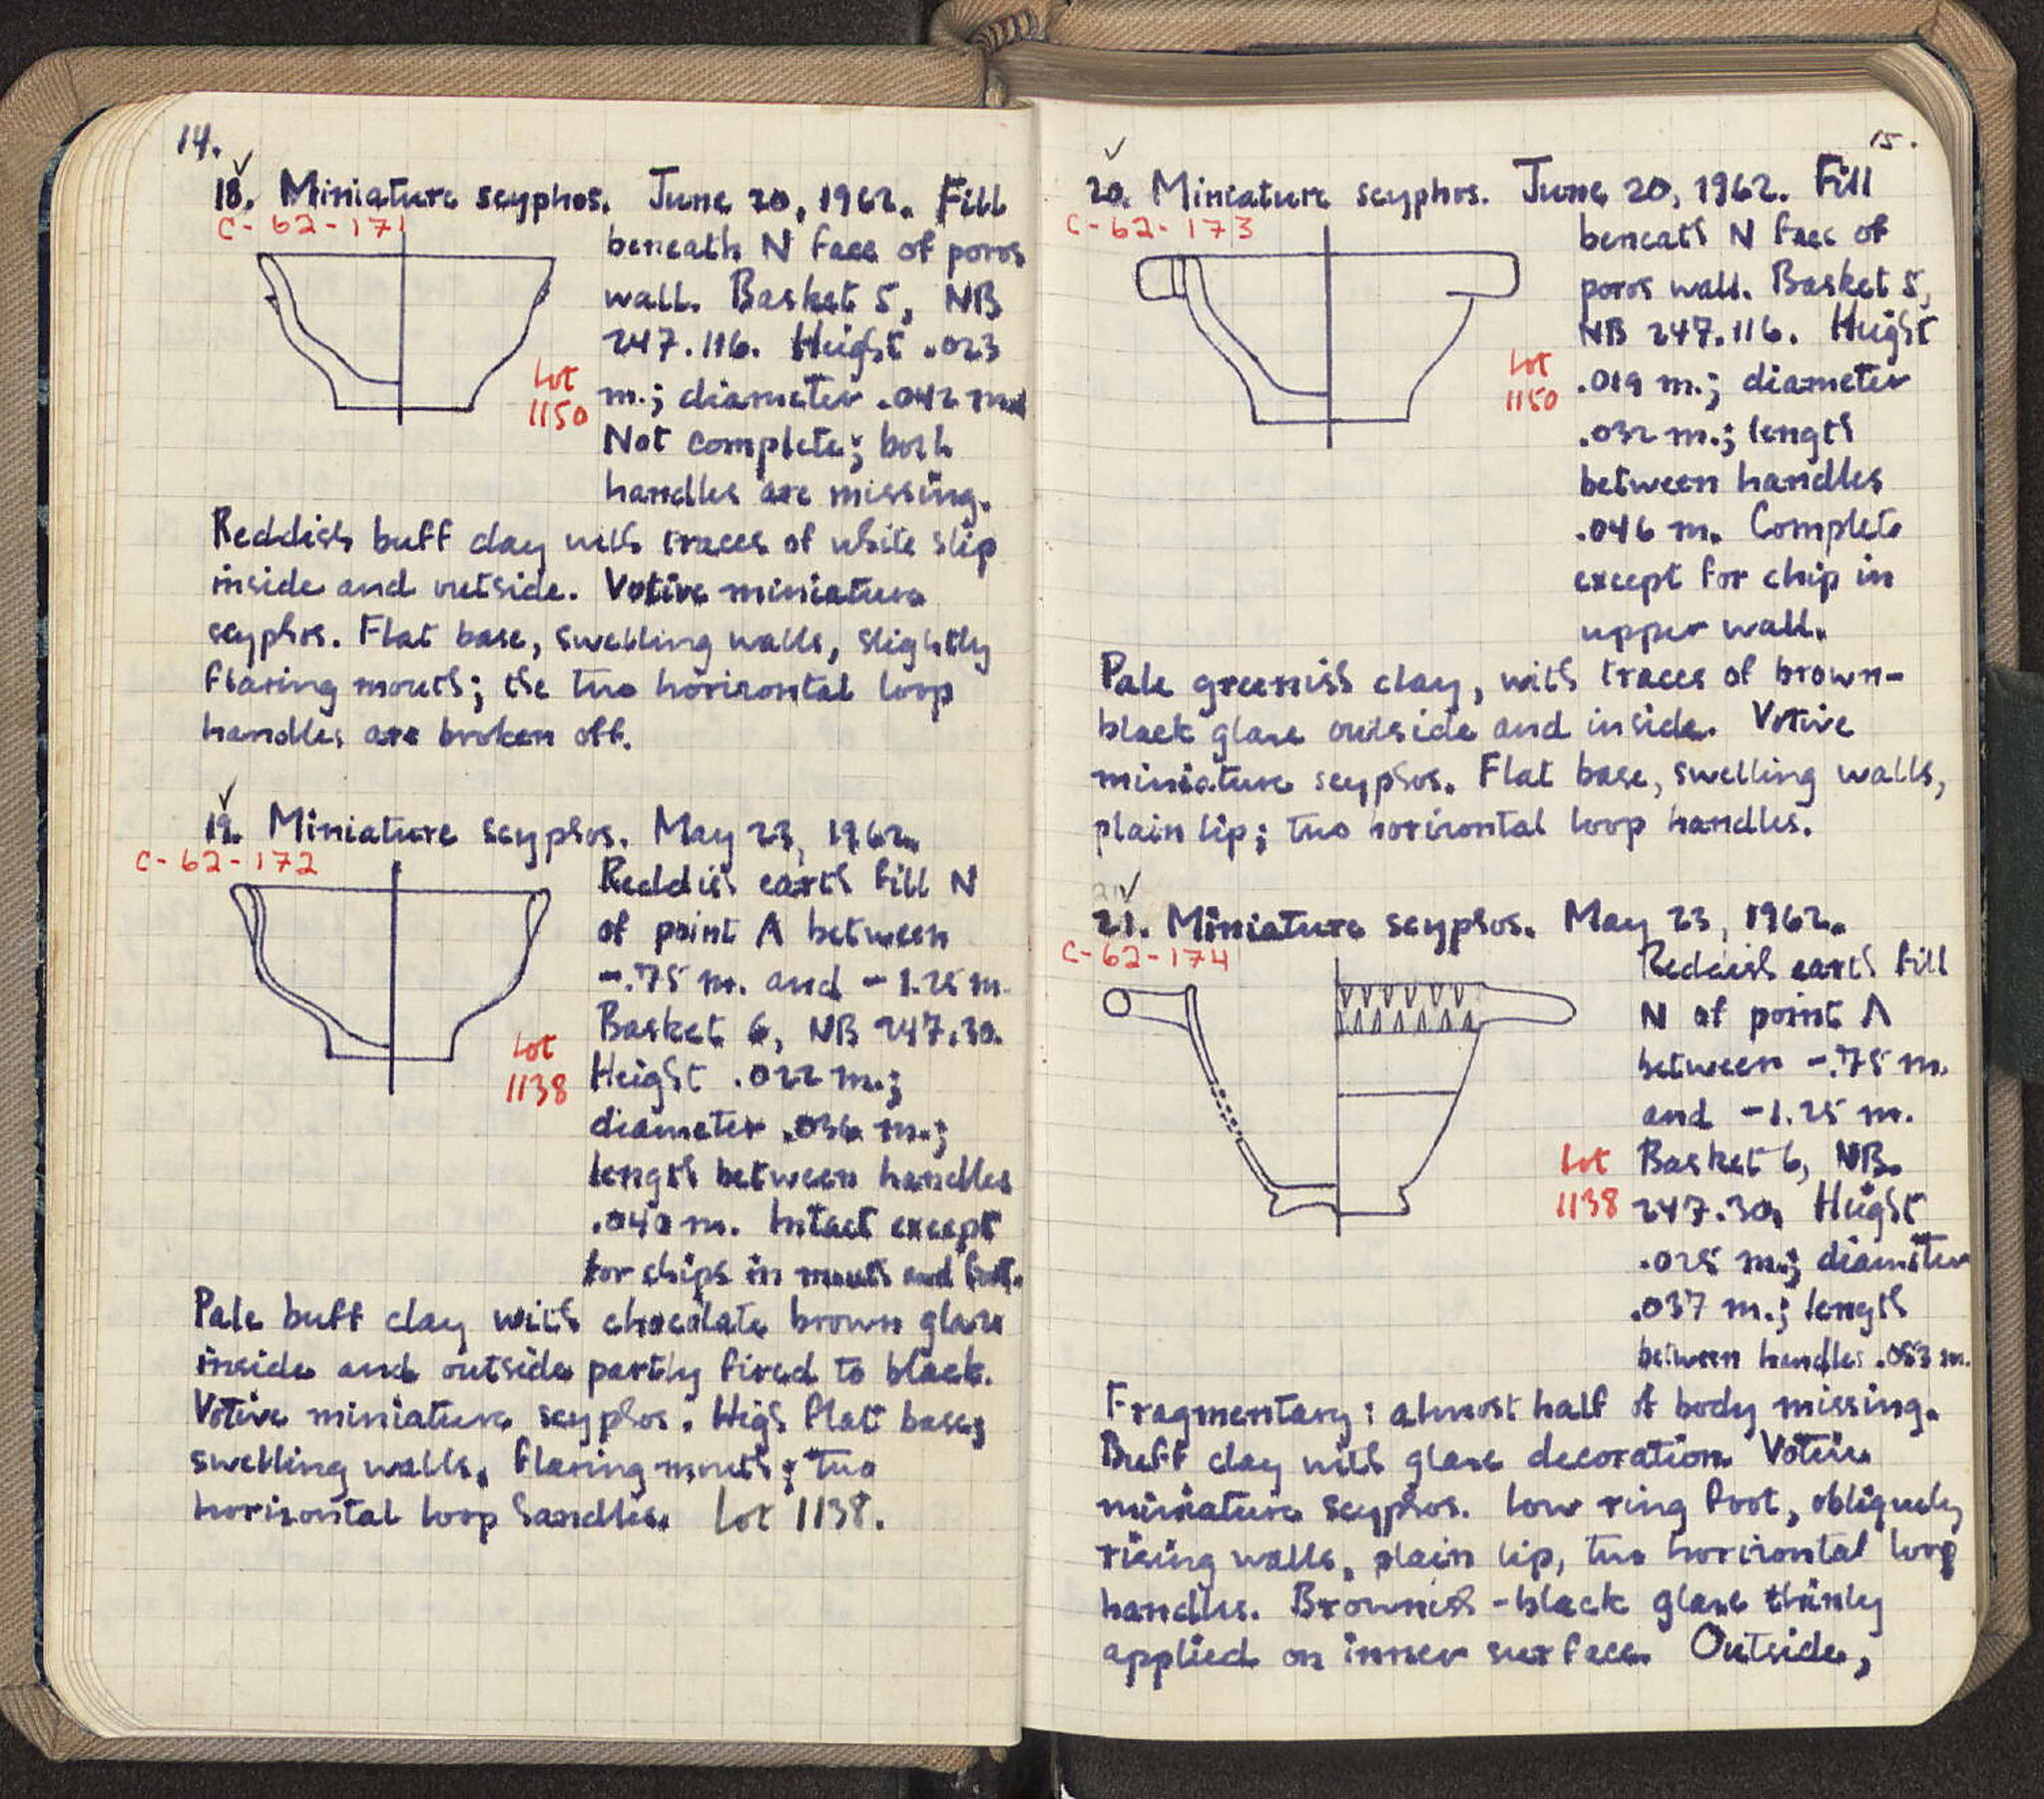 14.
✓
18. Miniature scyphos. June 20, 1962. Fill
C-62-171
beneath N face of poros
wall. Basket 5, NB
247.116. Height .023
Lot
1150
m.; diameter .042 m.
Not complete; both
handles are missing.
Reddish buff clay with traces of white slip
inside and outside. Votive miniature
scyphos. Flat base, swelling walls, slightly
flaring mouth; the two horizontal loop
handles are broken off.
✓
19. Miniature scyphos. May 23, 1962.
C-62-172
Reddish earth fill N
of point A between
-.75 m. and -1.25 m.
Basket 6, NB 247.30.
Lot
1138
Height .022 m.;
diameter .036 m.;
length between handles
.040 m. Intact except
for chips in mouth and foot.
Pale buff clay with chocolate brown glaze
inside and outside partly fired to black.
Votive miniature scyphos. High flat base,
swelling walls, flaring mouth; two
horizontal loop handles. Lot 1138.
15.
✓
20. Miniature scyphos. June 20, 1962. Fill
C-62-173
beneath N face of
poros wall. Basket 5,
NB 247.116. Height
Lot
1150
.019 m.; diameter
.032 m.; length
between handles
.046 m. Complete
except for chip in
upper wall.
Pale greenish clay, with traces of brown-
black glaze outside and inside. Votive
miniature scyphos. Flat base, swelling walls,
plain lip; two horizontal loop handles.
21 ✓
21. Miniature scyphos. May 23, 1962.
C-62-174
Reddish earth fill
N of point A
between -.75 m.
and -1.25 m.
Lot
1138
Basket 6, NB.
247.30. Height
.025 m.; diameter
.037 m.; length
between handles .053 m.
Fragmentary: almost half of body missing.
Buff clay with glaze decoration. Votive
miniature scyphos. Low ring foot, obliquely
rising walls, plain lip, two horizontal loop
handles. Brownish-black glaze thinly
applied on inner surface. Outside,